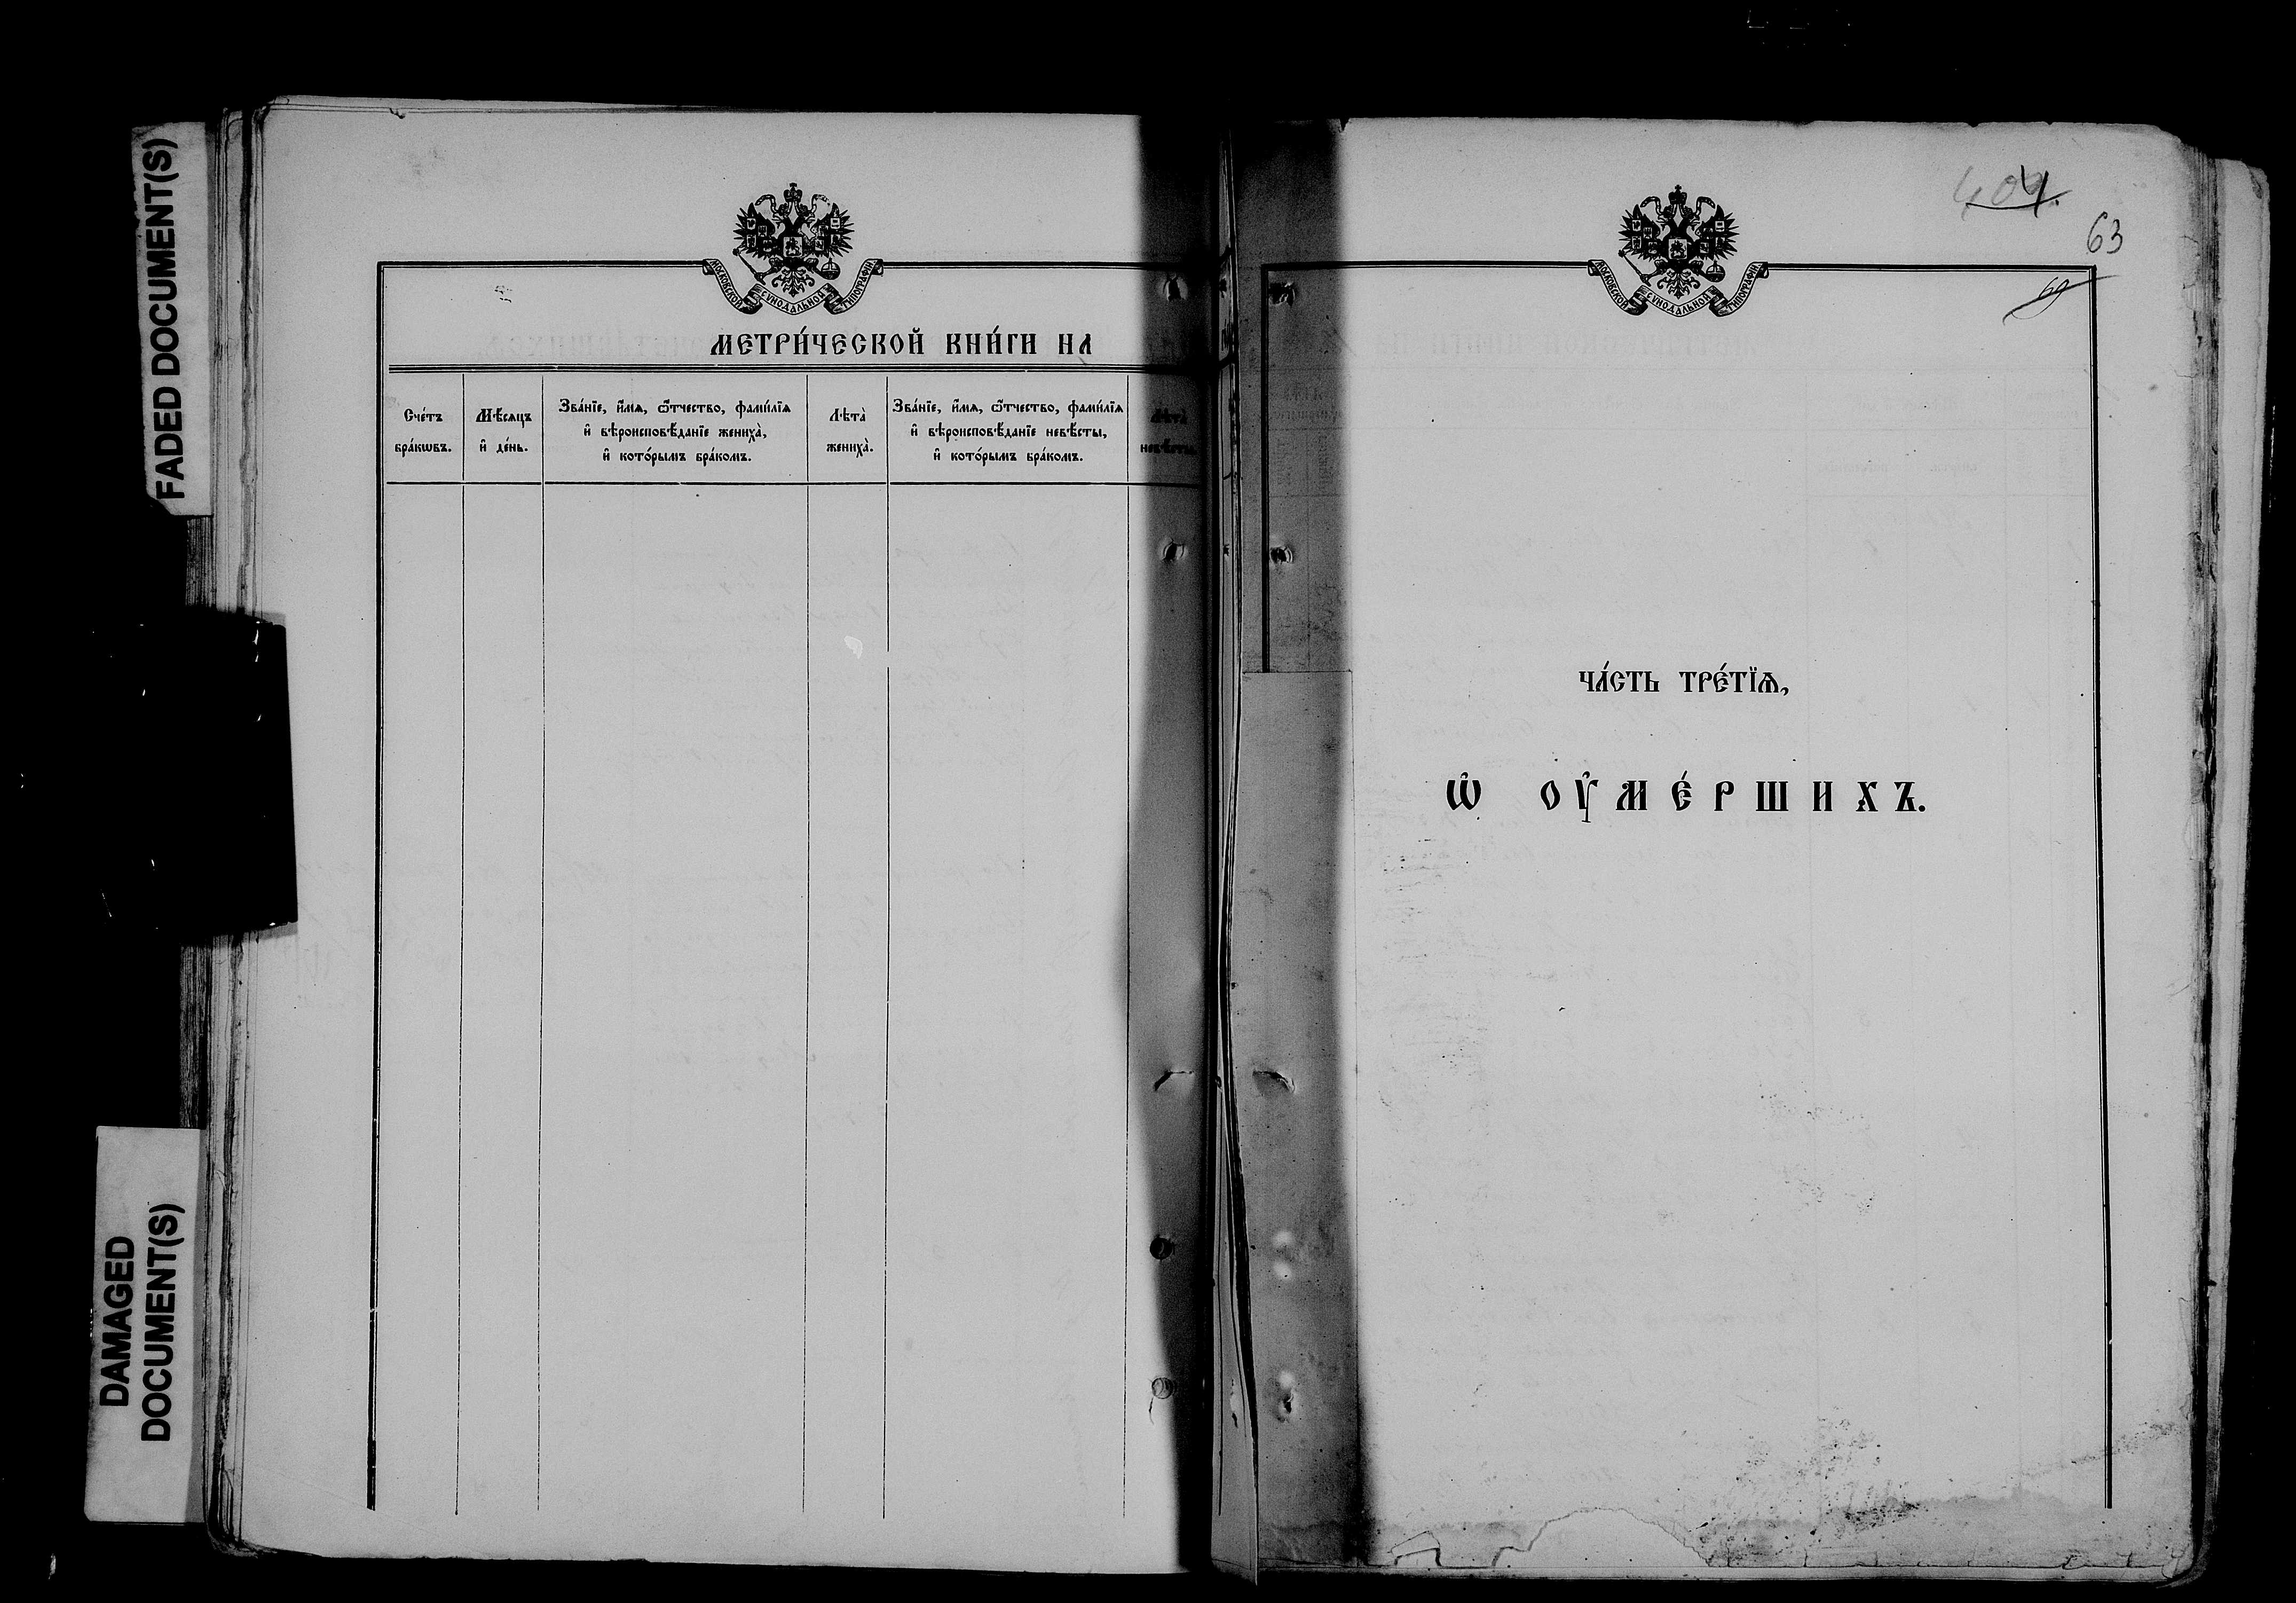 FADED DOCUMENT(S)
DAMAGED
DOCUMENT(S)
МОСКОВСКОЙ СѴНОДАЛЬНОЙ ТИПОГРАФІИ
МЕТРИ́ЧЕСКОЙ КНИ́ГИ НА
Сче́тъ
бра́кѡвъ.
Мѣ́сяцъ
и҆ де́нь.
Зва́нїе, и҆́мѧ, ѻ҆́тчество, фами́лїѧ
и҆ вѣроисповѣ́данїе жениха̀,
и҆ кото́рымъ бра́комъ.
Лѣта̀
жениха̀.
Зва́нїе, и҆́мѧ, ѻ҆́тчество, фами́лїѧ
и҆ вѣроисповѣ́данїе невѣ́сты,
и҆ кото́рымъ бра́комъ.
Лѣта̀
невѣ́сты.
63
69
МОСКОВСКОЙ СѴНОДАЛЬНОЙ ТИПОГРАФІИ
ЧА́СТЬ ТРЕ́ТЇѦ,
Ѡ҆ ОУ҆МЕ́РШИХЪ.